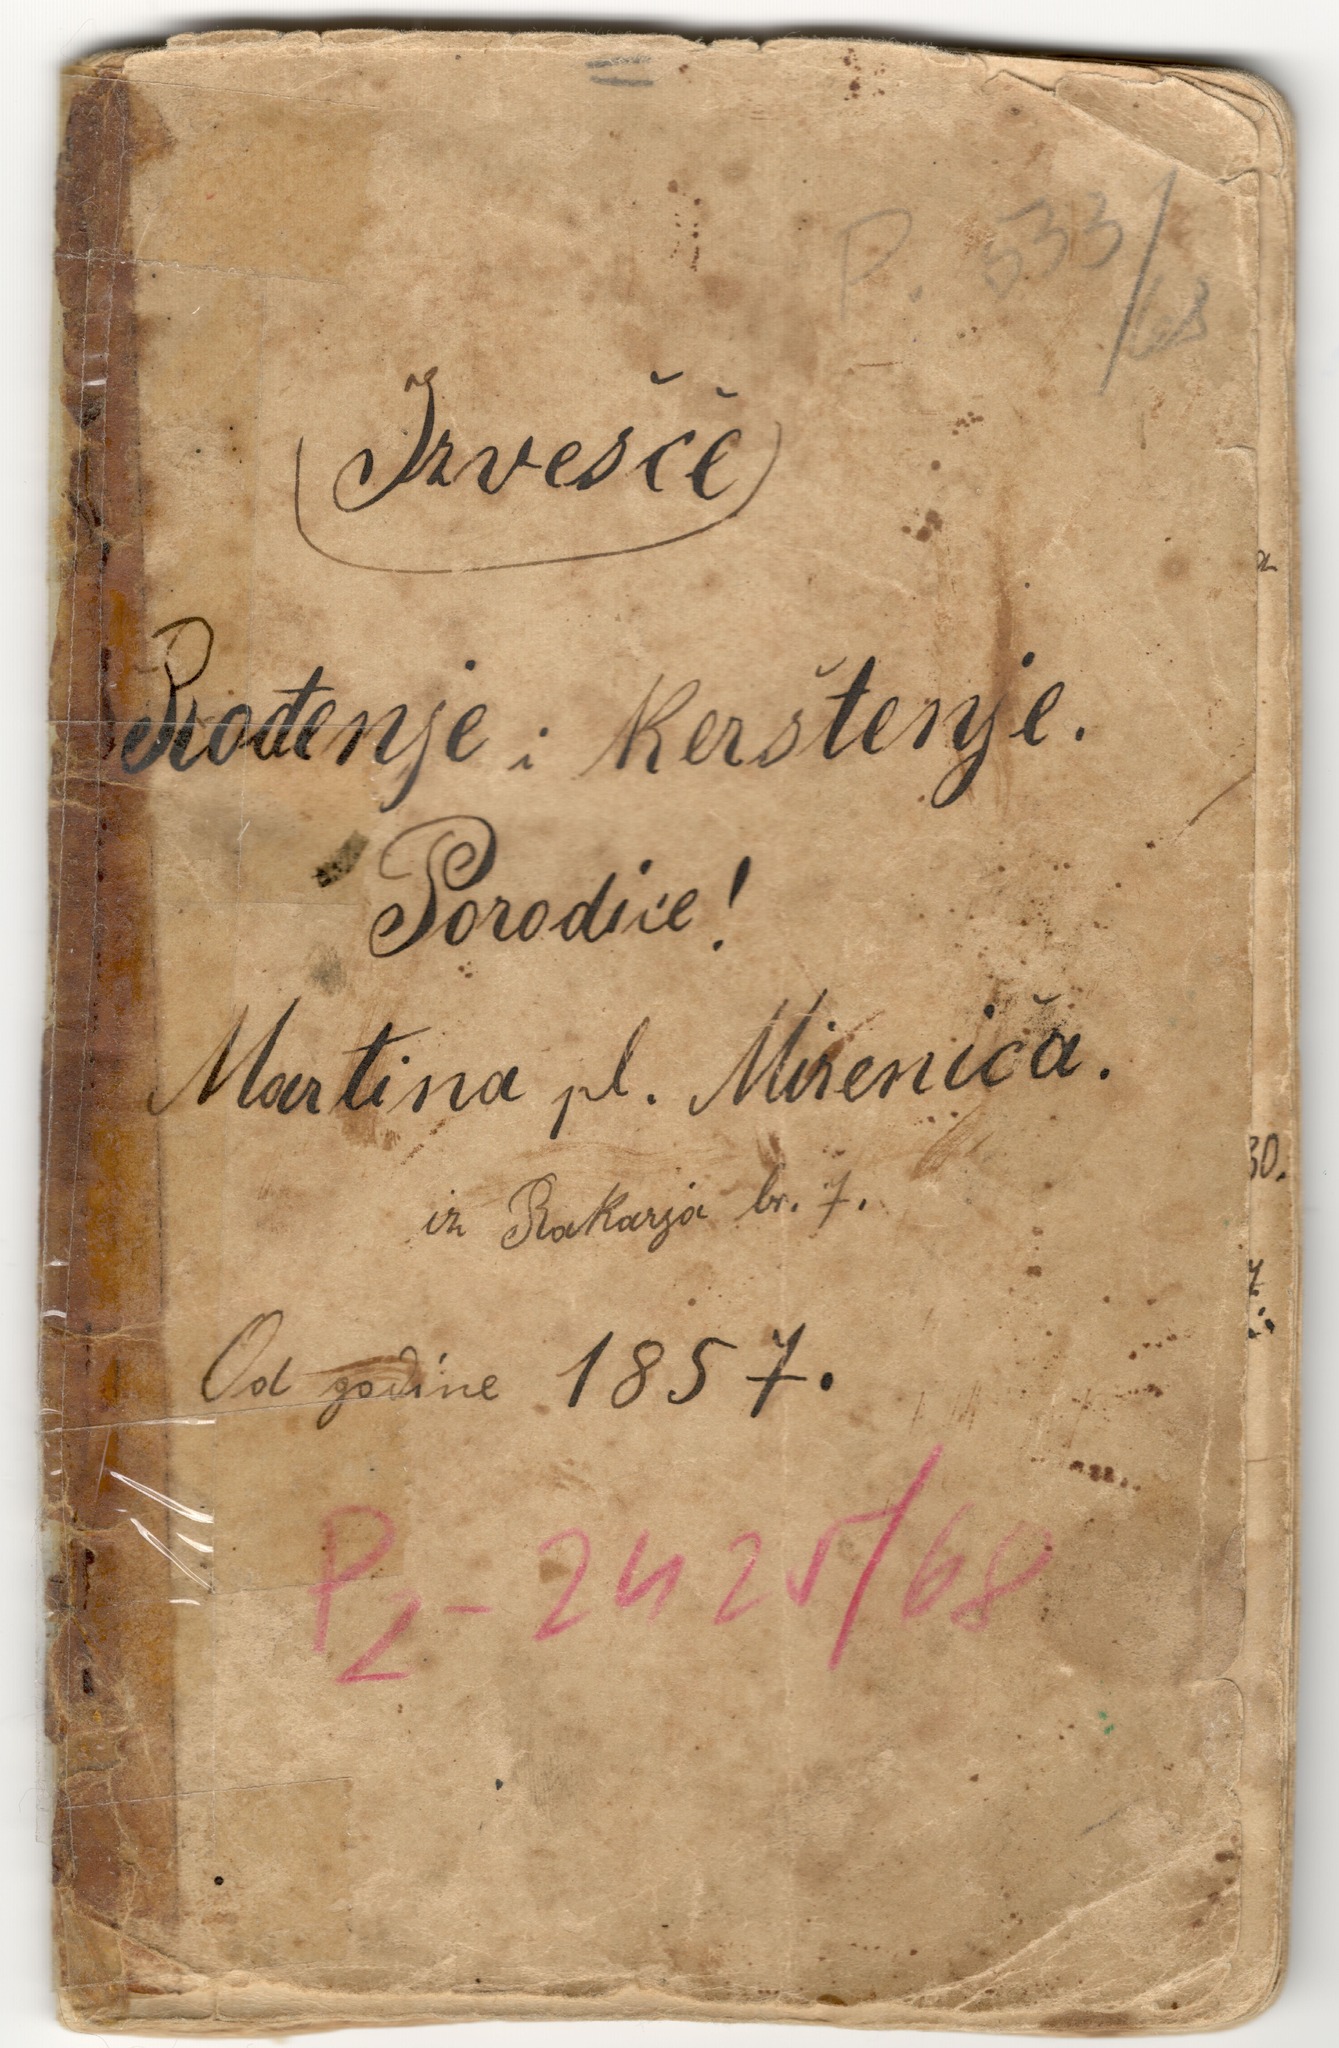 P. 533/68
Izvešče
Rođenje i Kerštenje.
Porodice!
Martina pl. Mirenića.
iz Rakarja br. 7.
Od godine 1857.
Pz-2425/68
30.